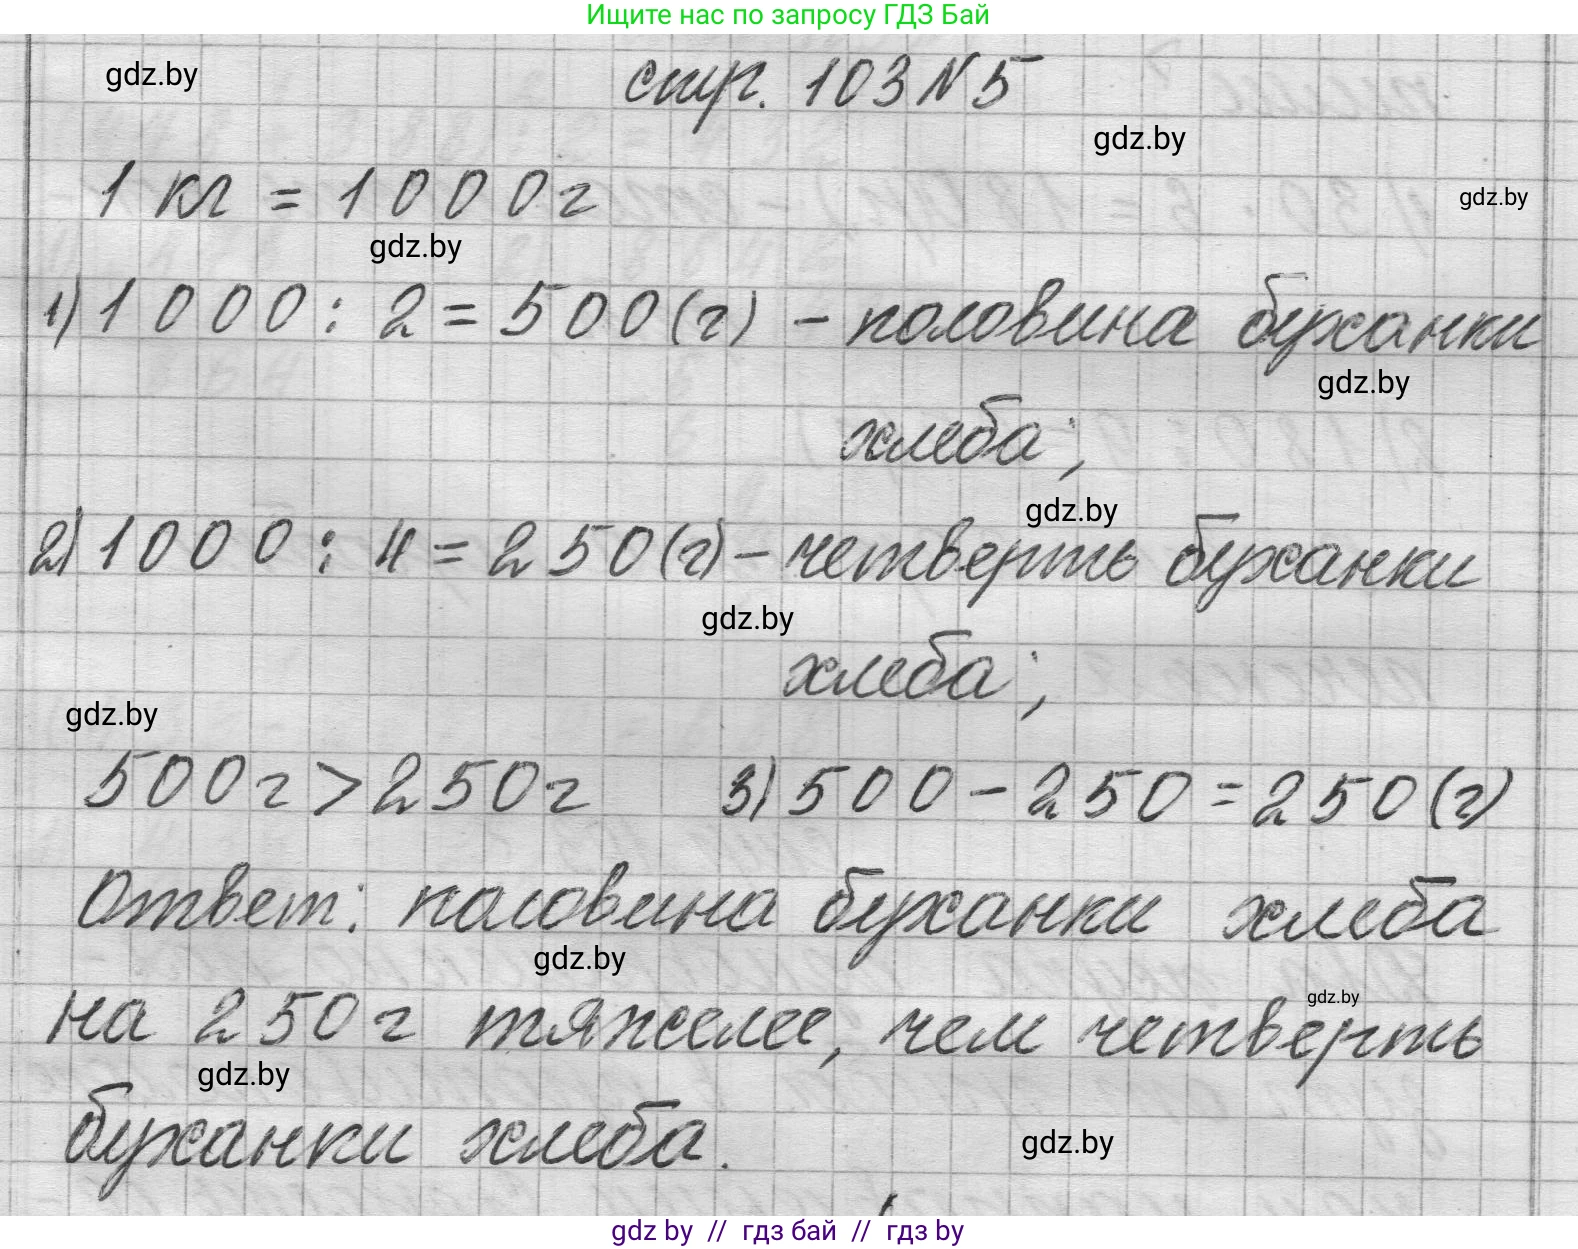 Ищите нас по запросу ГДЗ Бай
gdz.by
стр. 103 N 5
gdz.by
1 кг = 1000г
gdz.by
gdz.by
1) 1000 : 2 = 500 (г) - половина буханки
gdz.by
хлеба;
gdz.by
2) 1000 : 4 = 250 (г) - четверть буханки
gdz.by
хлеба;
gdz.by
500г > 250г 3) 500 - 250 = 250 (г)
Ответ: половина буханки хлеба
gdz.by
на 250 г тяжелее, чем четверть
gdz.by
gdz.by
буханки хлеба.
gdz.by
gdz by // гдз бай // гдз by